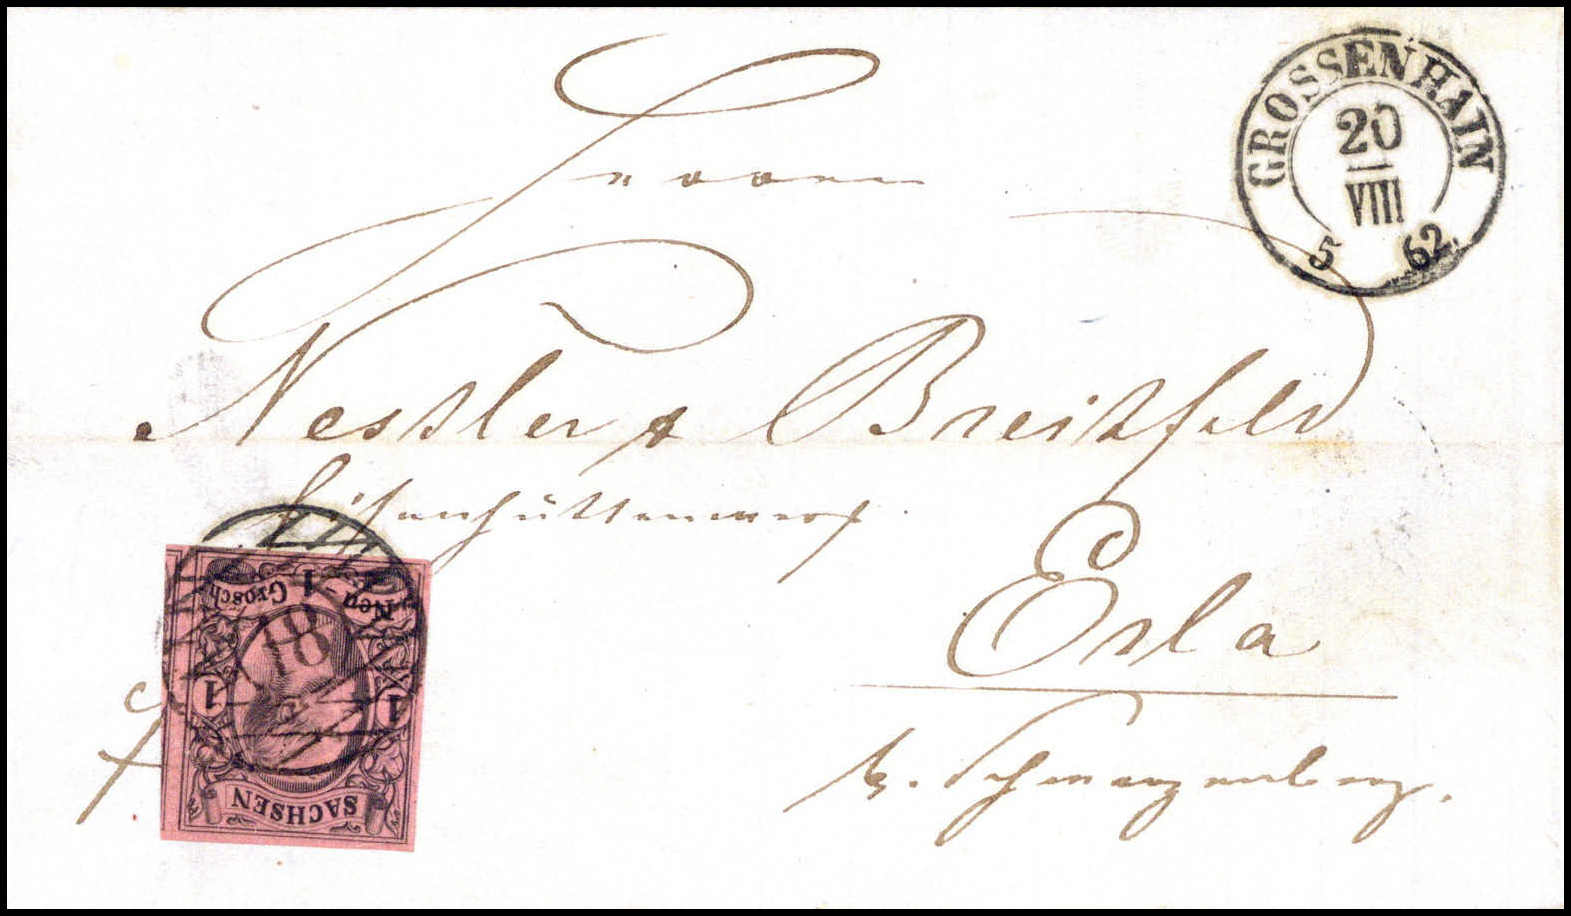 GROSSENHAIN
20
VIII
5 62
Herren
Nestler & Breitfeld
Eisenhüttenwerk
Erla
b. Schwarzenberg.
fr
Neu-1 Grosch
18
1 1
SACHSEN